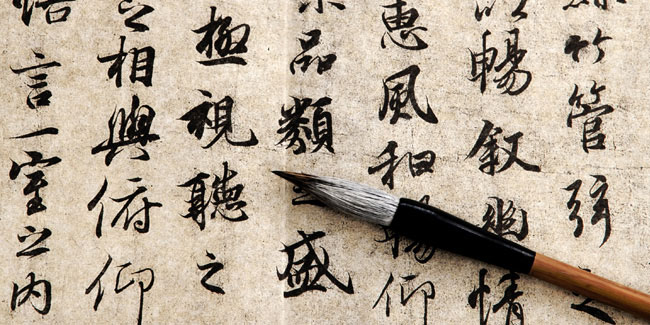 絲竹管弦之
以暢敘幽情
惠風和暢仰
察品類之盛
極視聽之
之相與俯仰
悟言一室之內